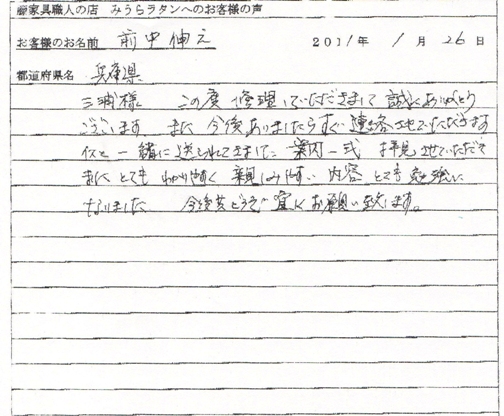 籐家具職人の店 みうらラタンへのお客様の声
お客様のお名前 前中伸え 2011年 1月 26日
都道府県名 兵庫県
三浦様 この度 修理していただきまして 誠にありがとう
ございます、また 今後ありましたらすぐ連絡させていただきます
イスと一緒に送られてきました 案内一式 拝見させていただき
ました とても わかりやすく 親しみやすい 内容 とても 勉強に
なりました 今後共どうぞ 宜しくお願い致します。